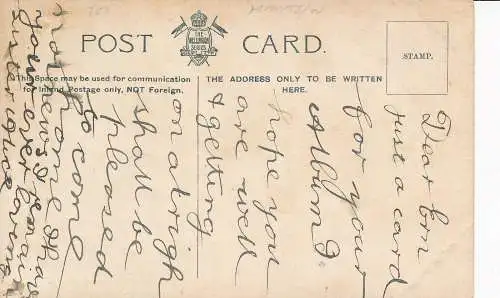 POST CARD.
THE WELLINGTON SERIES
STAMP.
This Space may be used for communication
for Inland Postage only, NOT Foreign.
THE ADDRESS ONLY TO BE WRITTEN
HERE.
Dear Ern
just a card
for your
Album I
hope you
are well
& getting
on alright
shall be
pleased
to come
home
news I remain
your ever loving
sister